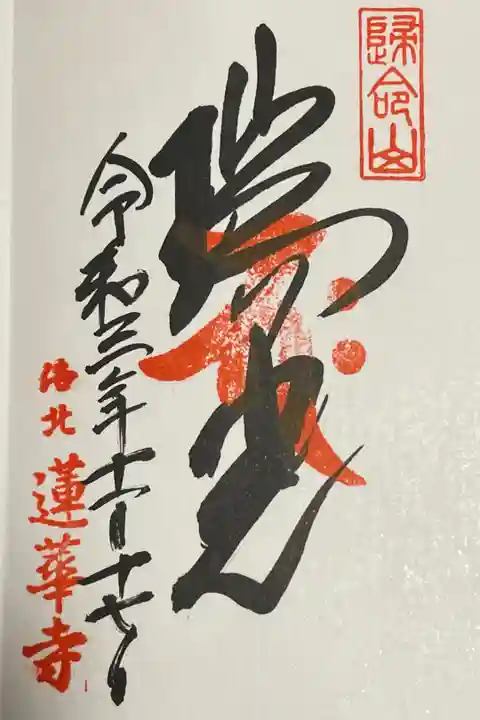 歸命山
瑞光
令和三年十一月十七日
洛北 蓮華寺